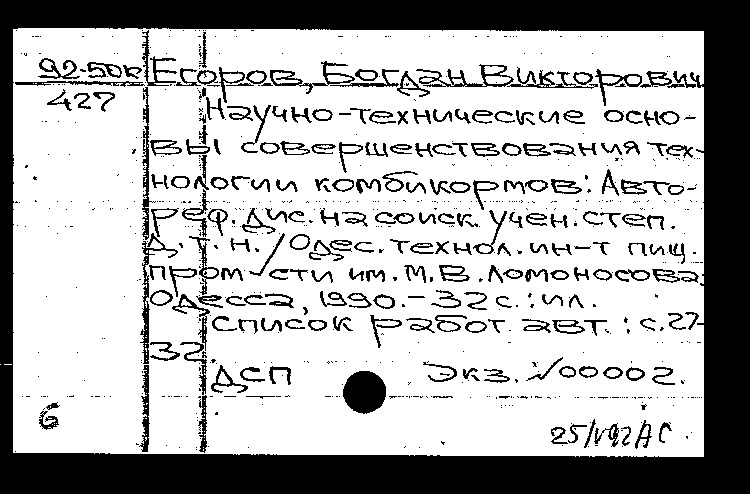 92-50к Егоров, Богдан Викторович
427 Научно-технические осно-
вы совершенствования тех-
нологии комбикормов: Авто-
реф. дис. на соиск. учен. степ.
д. т. н. / Одес. технол. ин-т пищ.
пром-сти им. М. В. Ломоносова.
Одесса, 1990. - 32 с. : ил.
Список работ авт. : с. 27-
32.
ДСП Экз. № 00002.
6